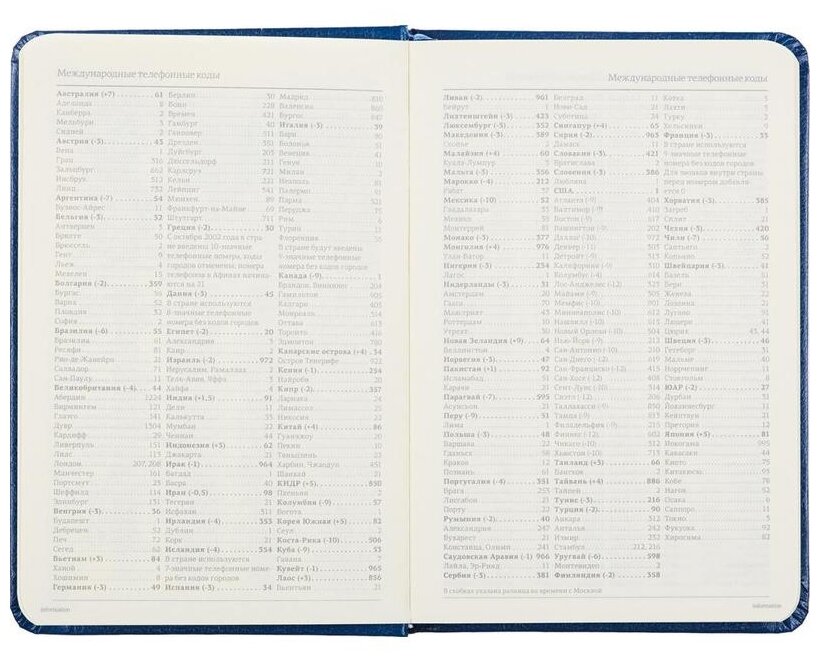 Международные телефонные коды
Австралия (+7) 61
Аделаида 8
Канберра 2
Мельбурн 3
Сидней 2
Австрия (-3) 43
Вена
Грац 316
Зальцбург 662
Инсбрук 512
Линц 732
Аргентина (-7) 54
Буэнос-Айрес 11
Бельгия (-3) 32
Антверпен 3
Брюгге 50
Брюссель 2
Гент 9
Льеж 4
Мехелен 15
Болгария (-2) 359
Бургас 56
Варна 52
Пловдив 32
София 2
Бразилия (-6) 55
Бразилиа 61
Ресифи 81
Рио-де-Жанейро 21
Салвадор 71
Сан-Паулу 11
Великобритания (-4) 44
Абердин 1224
Бирмингем 121
Глазго 141
Дувр 1304
Кардифф 29
Ливерпуль 151
Лидс 113
Лондон 207, 208
Манчестер 161
Портсмут 23
Шеффилд 114
Эдинбург 131
Венгрия (-3) 36
Будапешт 1
Дебрецен 52
Печ 72
Сегед 62
Вьетнам (+3) 84
Ханой 4
Хошимин 8
Германия (-3) 49
Берлин 30
Бонн 228
Бремен 421
Гамбург 40
Ганновер 511
Дрезден 351
Дуйсбург 203
Дюссельдорф 211
Карлсруэ 721
Кельн 221
Лейпциг 341
Мюнхен 89
Франкфурт-на-Майне 69
Штутгарт 711
Греция (-2) 30
С октября 2002 года в стра-
не введены 10-значные
телефонные номера, коды
городов отменены, номера
телефонов в Афинах начина-
ются на 21
Дания (-3) 45
В стране используются
8-значные телефонные
номера без кодов городов
Египет (-2) 20
Александрия 3
Каир 2
Израиль (-2) 972
Иерусалим, Рамаллах 2
Тель-Авив, Яффа 3
Хайфа 4
Индия (+1,5) 91
Дели 11
Калькутта 33
Мумбаи 22
Ченнаи 44
Индонезия (+3) 62
Джакарта 21
Ирак (-1) 964
Багдад 1
Басра 40
Иран (-0,5) 98
Тегеран 21
Исфахан 311
Ирландия (-4) 353
Дублин 1
Корк 21
Исландия (-4) 354
В стране используются
7-значные телефонные номе-
ра без кодов городов
Испания (-3) 34
Мадрид 810
Валенсия 860
Бургос
Италия (-3) 39
Бари 80
Болонья 51
Венеция 41
Генуя 10
Милан 2
Неаполь 81
Палермо 91
Парма 521
Перуджа 75
Рим 6
Турин 11
Флоренция 55
В стране будут введены
9-значные телефонные
номера без кодов городов
Канада (-9) 1
Брандон, Виннипег 204
Гамильтон 905
Калгари 403
Монреаль 514
Оттава 613
Торонто 416
Эдмонтон 780
Канарские острова (-4) 34
Остров Тенерифе 922
Кения (-1) 254
Найроби 20
Кипр (-2) 357
Ларнака 24
Лимассол 25
Никосия 22
Китай (+4) 86
Гуанчжоу 20
Пекин 10
Тяньцзинь 22
Харбин, Чжандун 451
Шанхай 21
КНДР (+5) 850
Пхеньян 2
Колумбия (-9) 57
Богота 1
Корея Южная (+5) 82
Сеул 2
Коста-Рика (-10) 506
Куба (-9) 53
Гавана 7
Кувейт (-1) 965
Лаос (+3) 856
Вьентьян 21
information
Международные телефонные коды
Ливан (-2) 961
Бейрут 1
Лихтенштейн (-3) 423
Люксембург (-3) 352
Македония (-3) 389
Скопье 2
Малайзия (+4) 60
Куала-Лумпур 3
Мальта (-3) 356
Марокко (-4) 212
Рабат 37
Мексика (-10) 52
Гвадалахара 33
Мехико 55
Монтеррей 81
Монако (-3) 377
Монголия (+4) 976
Улан-Батор 11
Нигерия (-3) 234
Лагос 1
Нидерланды (-3) 31
Амстердам 20
Гаага 70
Маастрихт 43
Роттердам 10
Утрехт 30
Новая Зеландия (+9) 64
Веллингтон 4
Норвегия (-3) 47
Пакистан (+1) 92
Исламабад 51
Карачи 21
Парагвай (-7) 595
Асунсьон 21
Перу (-9) 51
Лима 1
Польша (-3) 48
Варшава 22
Гданьск 58
Краков 12
Познань 61
Португалия (-4) 351
Брага 253
Лиссабон 21
Порту 22
Румыния (-2) 40
Александрия 247
Бухарест 21
Констанца, Олимп 241
Саудовская Аравия (-1) 966
Лайла, Эр-Рияд 11
Сербия (-3) 381
Белград 11
Нови-Сад 21
Суботица 24
Сингапур (+4) 65
Сирия (-2) 963
Дамаск 11
Словакия (-3) 421
Братислава 2
Словения (-3) 386
Любляна 1
США 1
Атланта (-9) 404
Балтимор (-9) 410
Бостон (-9) 617
Вашингтон (-9) 202
Даллас (-10) 972
Денвер (-11) 303
Детройт (-9) 313
Калифорния (-9) 310
Кливленд (-9) 216
Лос-Анджелес (-12) 323
Майами (-9) 305
Мемфис (-10) 901
Миннеаполис (-10) 612
Нашвилл (-10) 615
Новый Орлеан (-10) 504
Нью-Йорк (-9) 212
Сан-Антонио (-10) 210
Сан-Диего (-12) 619
Сан-Франциско (-12) 415
Сан-Хосе (-12) 408
Сент-Луис (-10) 314
Сиэтл (-12) 206
Талахасси (-9) 850
Тампа (-9) 813
Филадельфия (-9) 215
Финикс (-11) 602
Чикаго (-10) 312
Хьюстон (-10) 713
Таиланд (+3) 66
Бангкок 2
Тайвань (+4) 886
Тайпей 2
Тунис (-3) 216
Турция (-2) 90
Анкара 312
Анталья 242
Измир 232
Стамбул 212, 216
Уругвай (-6) 598
Монтевидео 2
Финляндия (-2) 358
Котка 5
Лахти 3
Турку 2
Хельсинки 9
Франция (-3) 33
В стране используются
9-значные телефонные
номера без кодов городов
Для звонков внутри страны
перед номером добавля-
ется 0
Хорватия (-3) 385
Загреб 1
Сплит 21
Чехия (-3) 420
Чили (-7) 56
Сантьяго 2
Копьяпо 52
Швейцария (-3) 41
Базель 61
Берн 31
Женева 22
Лозанна 21
Лугано 91
Люцерн 41
Цюрих 43, 44
Швеция (-3) 46
Гетеборг 31
Мальме 40
Норрчепинг 11
Стокгольм 8
ЮАР (-2) 27
Дурбан 31
Йоханнесбург 11
Кейптаун 21
Претория 12
Япония (+5) 81
Иокогама 45
Кавасаки 44
Киото 75
Китакюсю 93
Кобе 78
Нагоя 52
Осака 6
Саппоро 11
Токио 3
Фукуока 92
Хиросима 82
В скобках указана разница во времени с Москвой
information